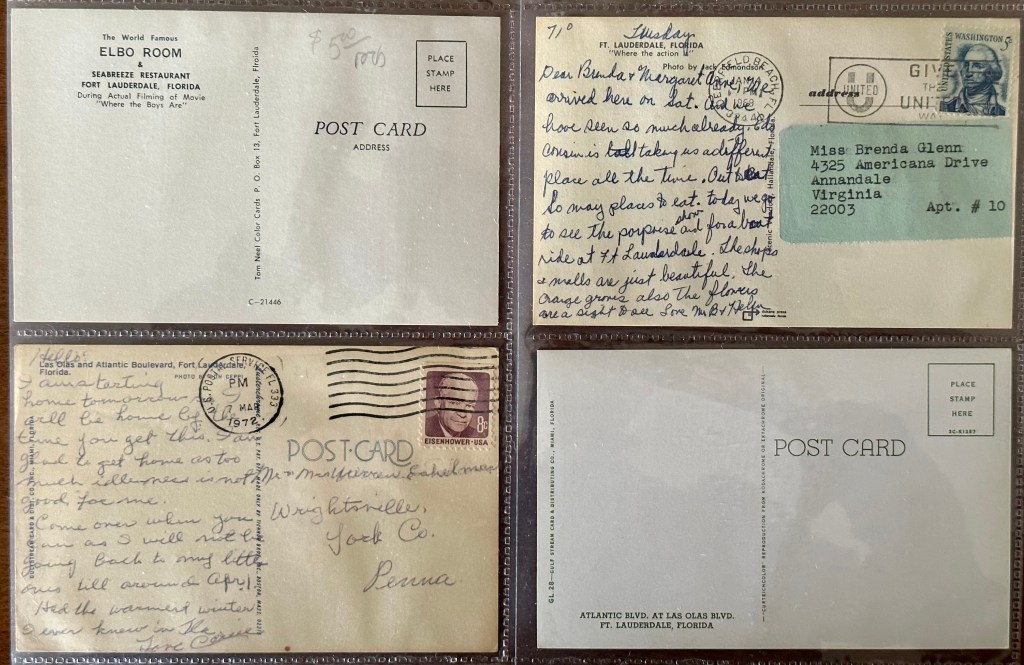 The World Famous
ELBO ROOM
&
SEABREEZE RESTAURANT
FORT LAUDERDALE, FLORIDA
During Actual Filming of Movie
"Where the Boys Are"
$ 5.00/
Tom Neel Color Cards P. O. Box 13, Fort Lauderdale, Floroida
C-21446
PLACE
STAMP
HERE
POST CARD
ADDRESS
71° Tuesday
FT. LAUDERDALE, FLORIDA
"Where the action is"
Photo by Jack Edmondson
Dear Brenda & Margaret Ann, We
arrived here on Sat. and we
have seen so much already. Eds
cousin is taking us a different
place all the time. Out to eat
So may places to eat. today we go
to see the porpoise show and for a boat
ride at Ft Lauderdale. The shops
& malls are just beautiful. The
Orange groves also The flowers
are a sight to see Love Mr B & Helen
address
DEERFIELD BEACH, FL
PM
1969
GIVE
THE
UNITED
WAY
UNITED
UNITED STATES
WASHINGTON 5¢
Miss Brenda Glenn
4325 Americana Drive
Annandale
Virginia
22003 Apt. # 10
Hello:
Las Olas and Atlantic Boulevard, Fort Lauderdale,
Florida.
PHOTO BY
I am starting
home tomorrow
will be home by the
time you get this. I am
glad to get home as too
much idleness is not
good for me.
Come over when you
can as I will not be
going back to my little
ones till around April
Had the warmest winter
I ever knew in the
Love
U.S. POSTAL SERVICE FL 333
PM
MAR
1972
EISENHOWER·USA
8c
POST·CARD
Mr & Mrs Eshelman
Wrightsville,
York Co.
Penna.
GL 28—GULF STREAM CARD & DISTRIBUTING CO., MIAMI, FLORIDA
ATLANTIC BLVD. AT LAS OLAS BLVD.
FT. LAUDERDALE, FLORIDA
POST CARD
PLACE
STAMP
HERE